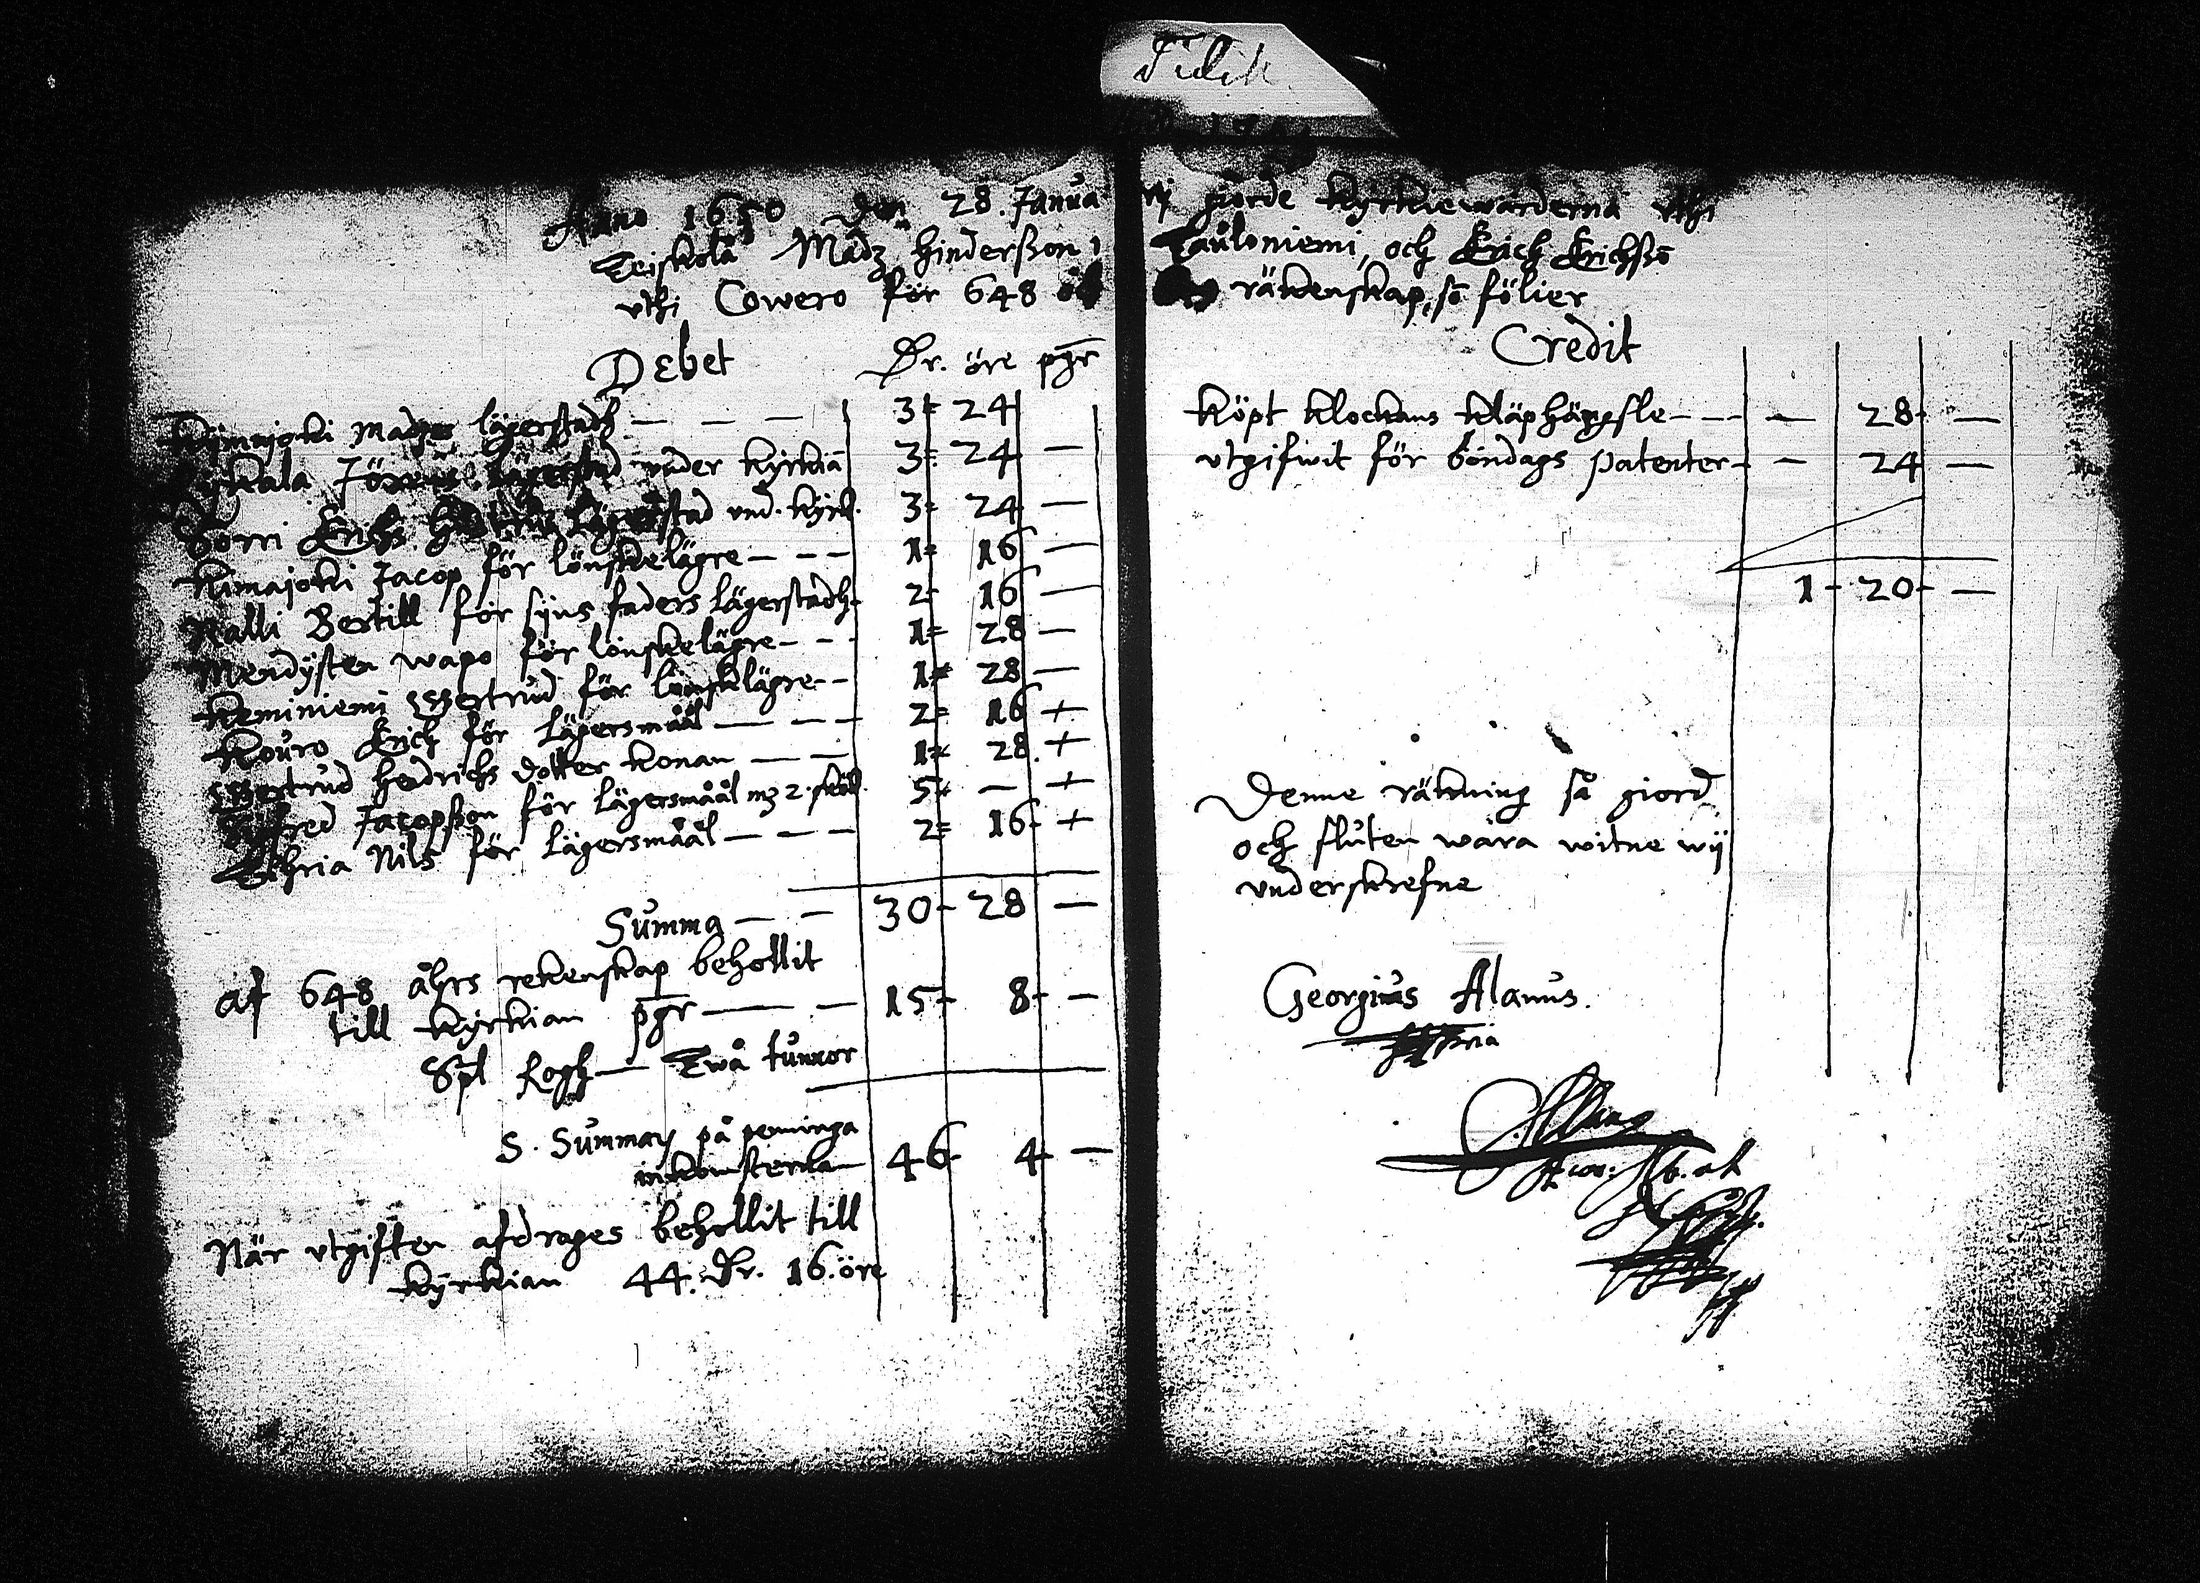 Anno 1650 den 28. Janua rij giorde kyrkiewarderna uthi
Teiskola Madz Hinderßon i Tauloniemi, och Erich Erichßo
uthi Cowero för 648 räkenskap, so fölier
Debet Dr. öre pgr
Kijmajoki Madz lägerstadh — — — 3 = 24
Jören lägerstad under kyrkia 3 = 24 —
Sorri Erichs lägerstad und. kyrk. 3 = 24 —
Kimajoki Jacop för lönskelägre — — — 1 = 16 —
Nalli Bertill för sijns faders lägerstadh 2 - 16 —
Mendysten wapo för lönskelägre — — 1 = 28 —
Keminiemi Gertrud för lönskelägre — 1 = 28 —
Kouro Erich för lägersmåål — — — 2 = 16 +
Gertrud Hendrichs dotter konan — — 1 = 28 +
Jacopßon för lägersmåål mz 2. 5 = — +
Nils för lägersmåål — — — 2 = 16 +
Summa — — 30 - 28 —
af 648 åhrs rekenskap behollit
till kyrkian pgr — — 15 - 8 - —
Spl Rogh — Twå tunnor
S. Summar på peninga
inkomsterna 46 - 4 - —
När utgiften afdrages behollit till
kyrkian 44. Dr. 16. öre
Credit
köpt klockans kläphängsle — — — 28 —
utgifwit för böndags patenter — — 24 —
1 - 20 - —
Denne räkning så giord
och sluten wara witne wij
underskrefne
Georgius Alanus.